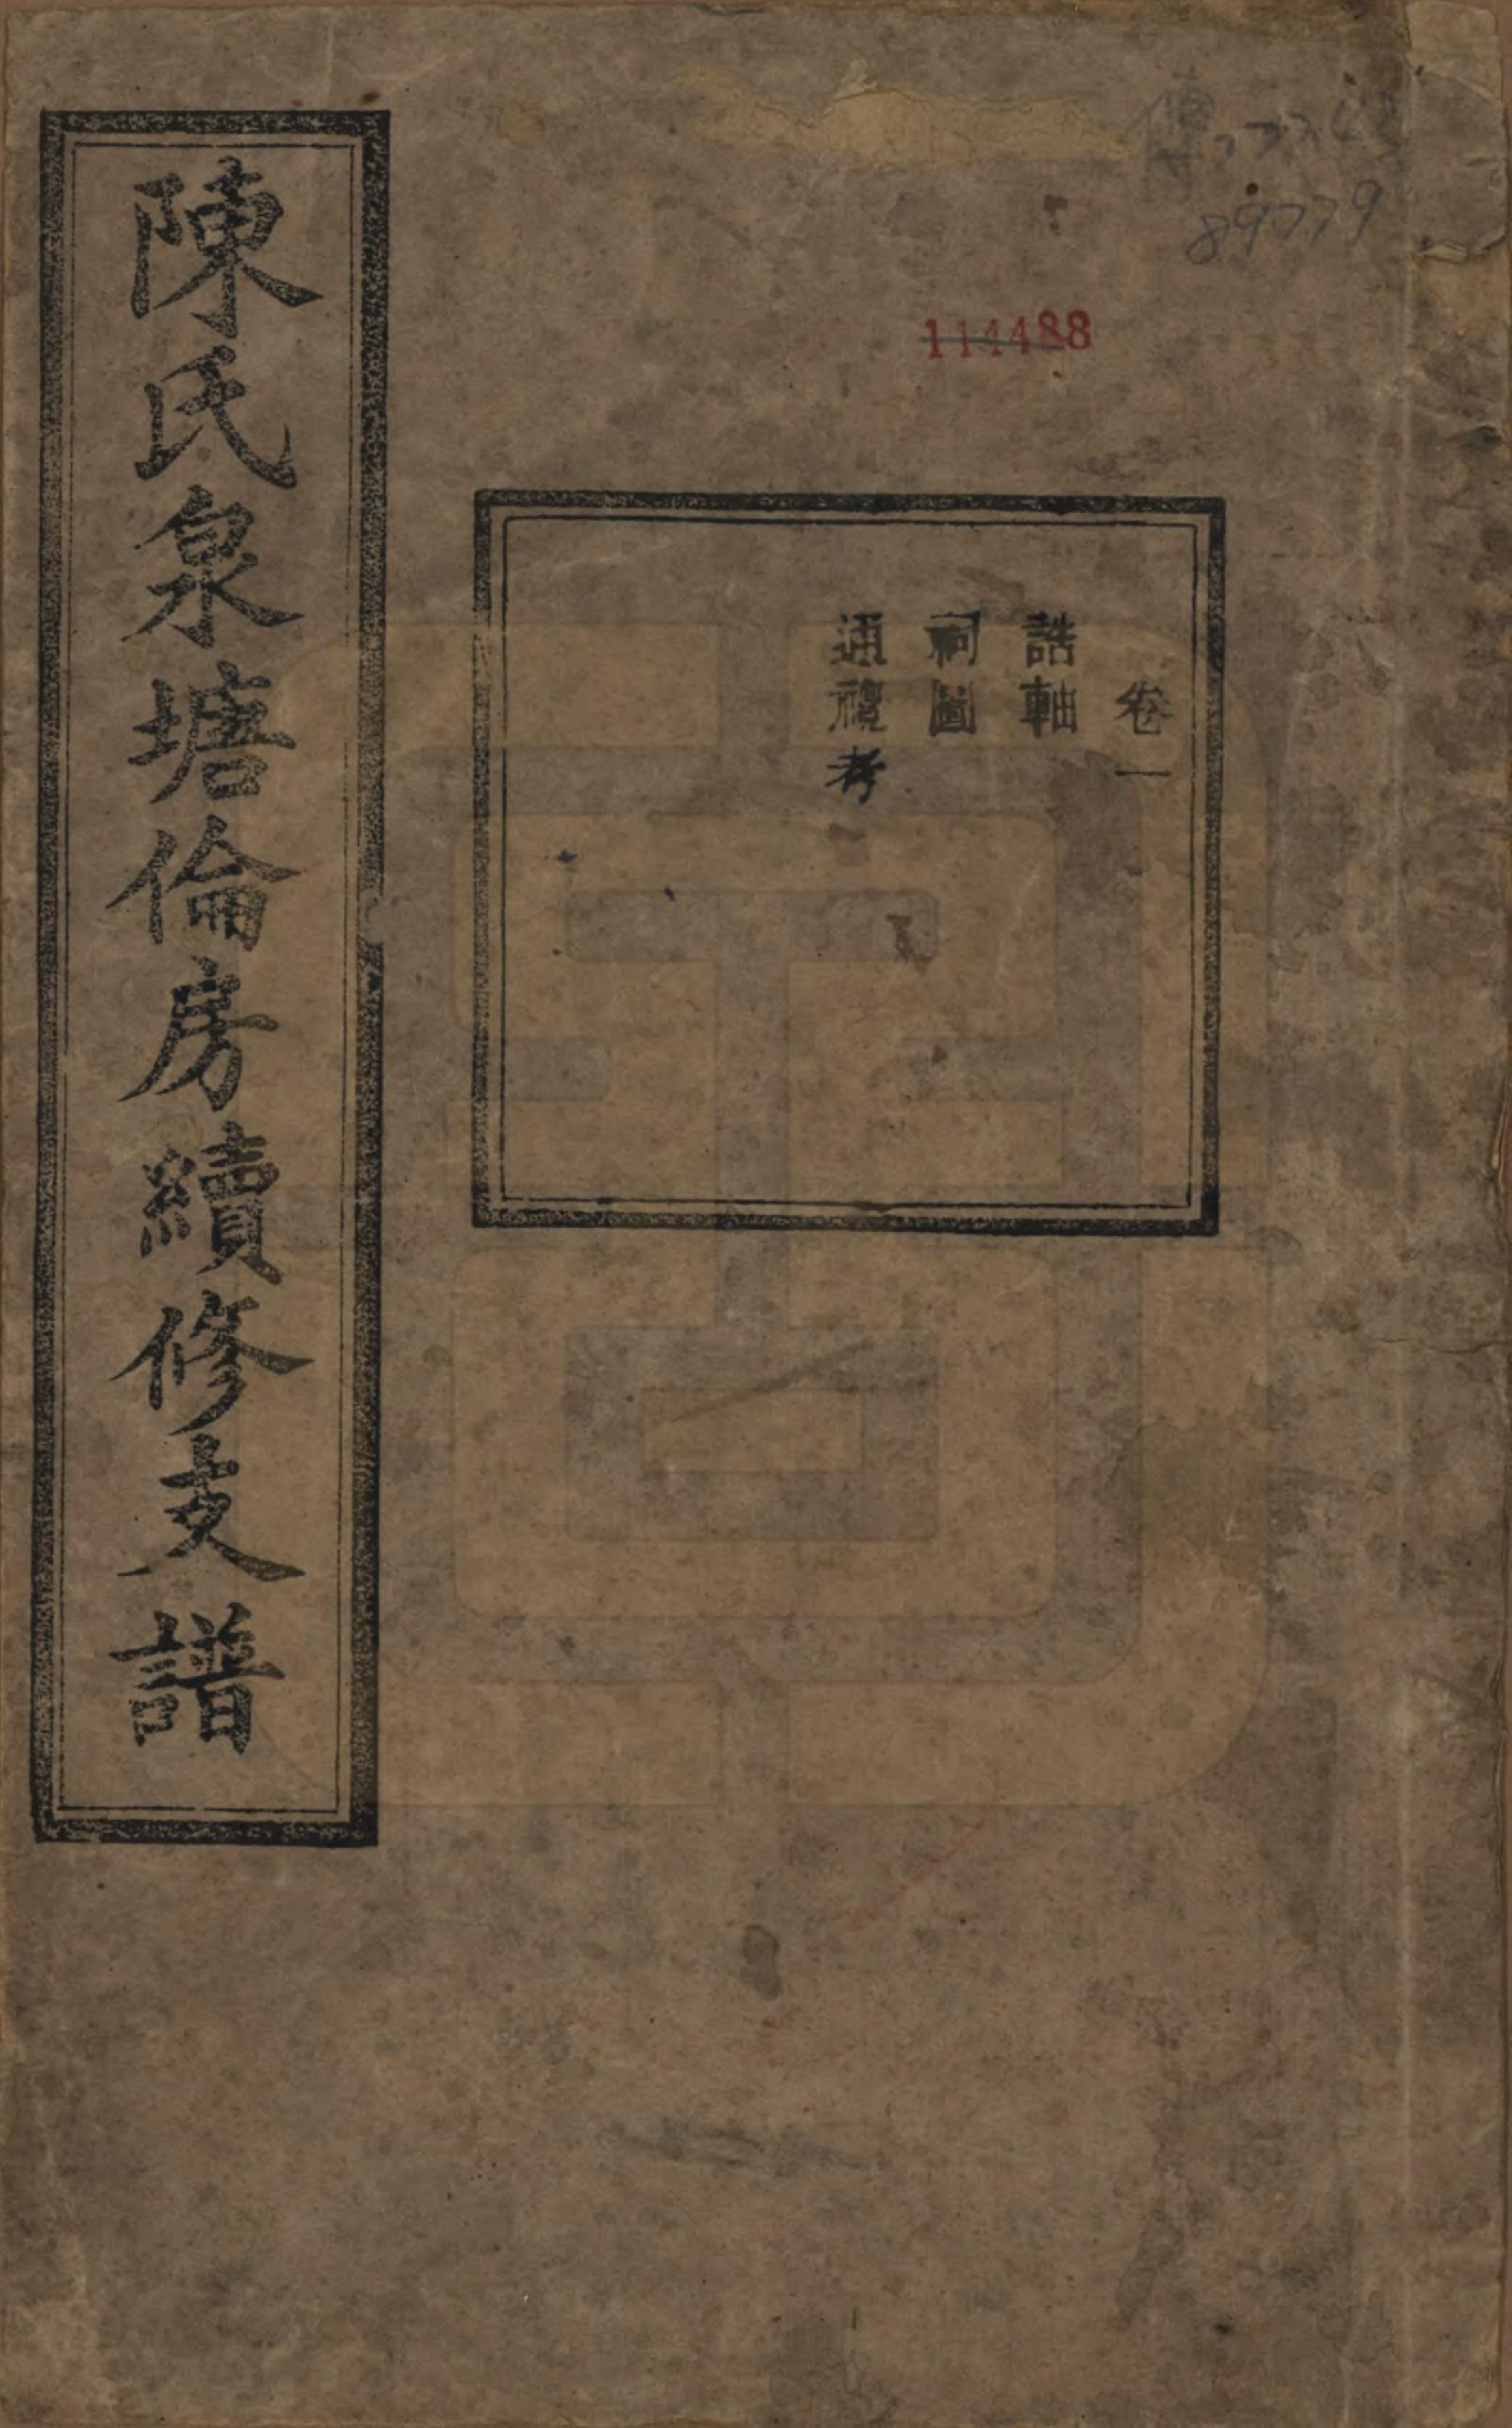 89779
114488
卷一
誥軸
祠圖
通禮考
陳氏泉塘倫房續修支譜